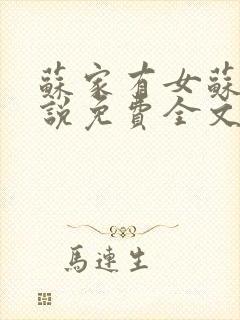 蘇家有女蘇
說免費全文
馬連生